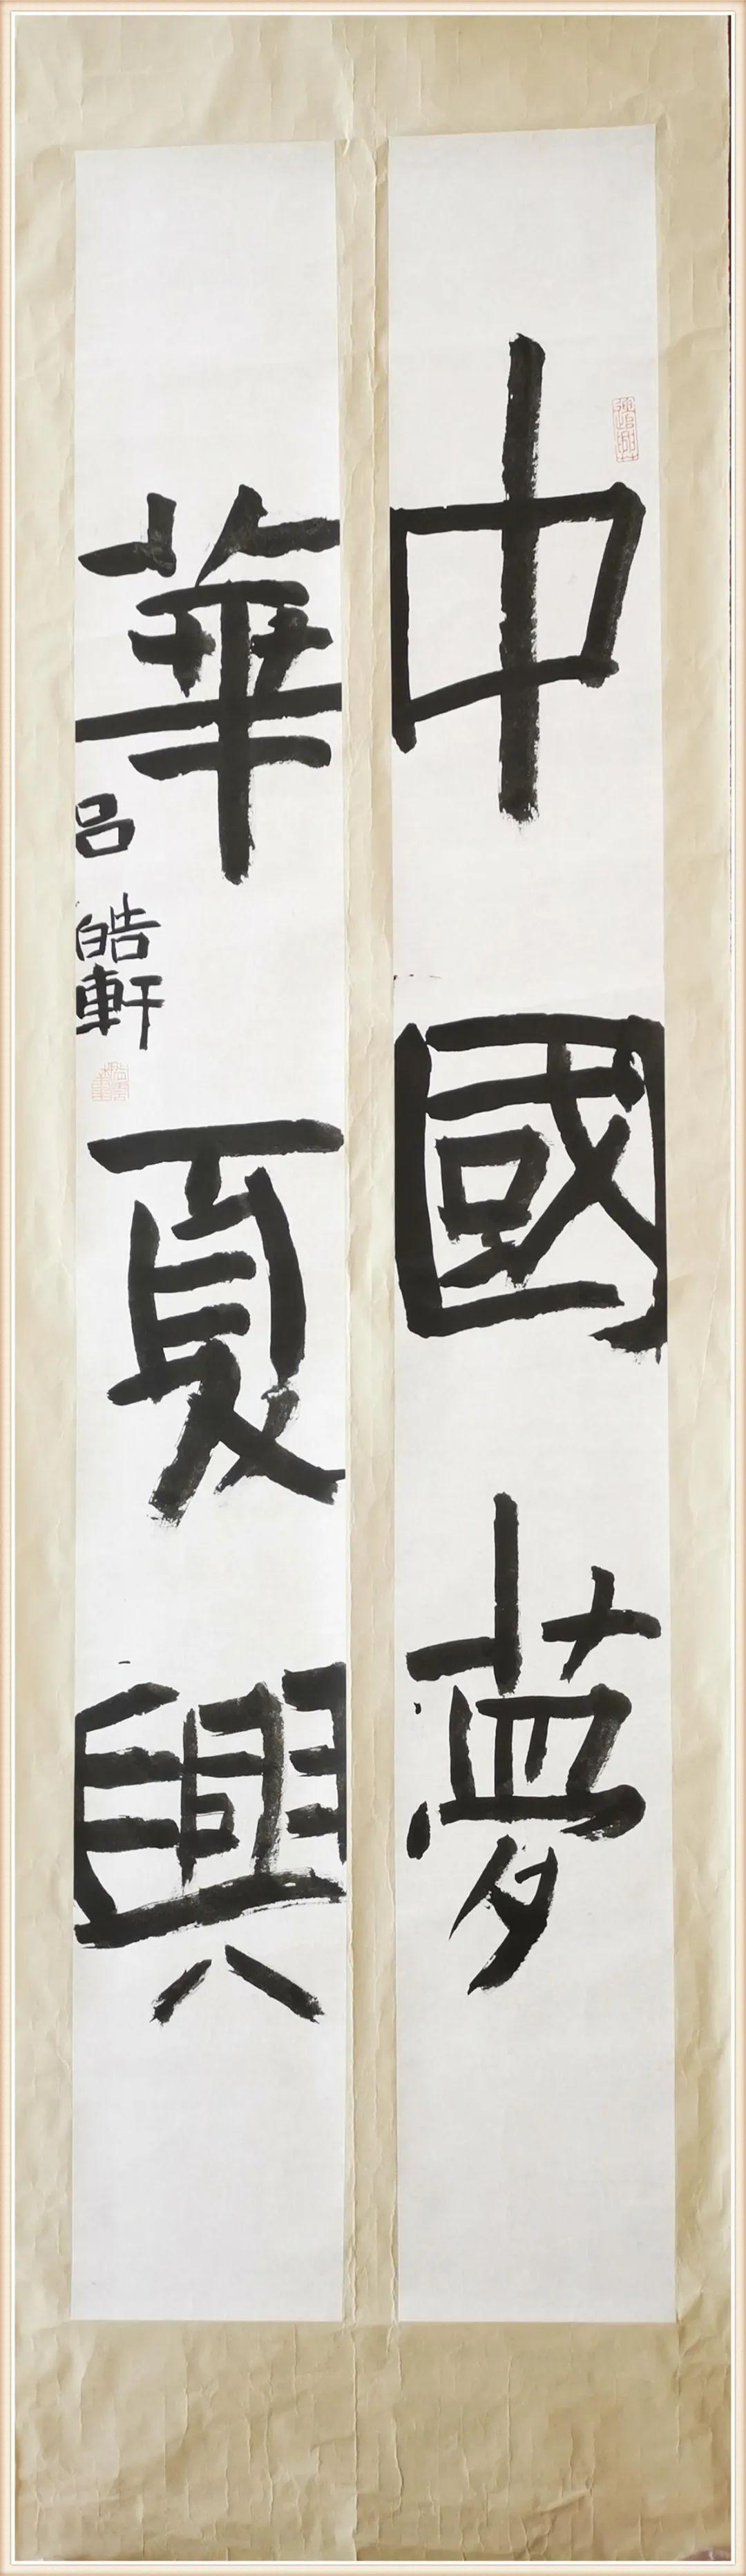 中國夢
華夏興
呂皓軒